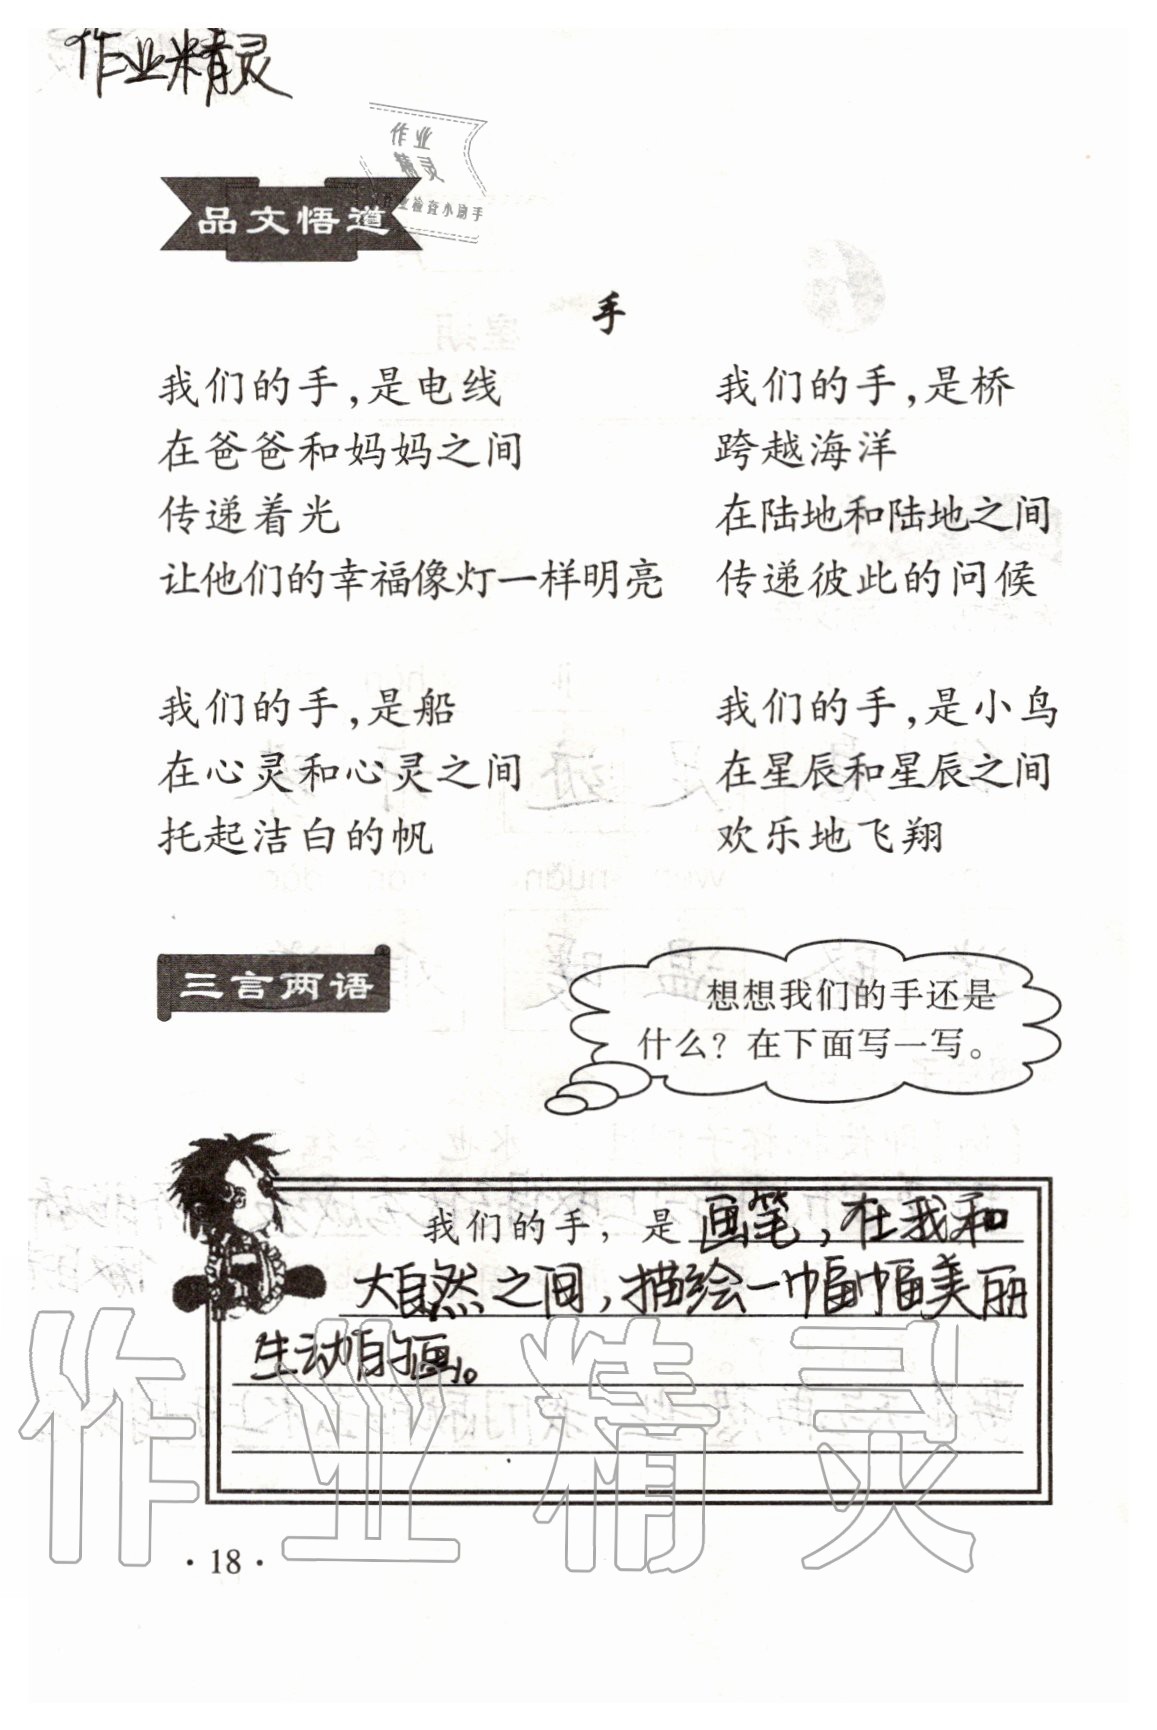 作业精灵
作业
精灵
作业检查小助手
品文悟道
手
我们的手，是电线
在爸爸和妈妈之间
传递着光
让他们的幸福像灯一样明亮
我们的手，是桥
跨越海洋
在陆地和陆地之间
传递彼此的问候
我们的手，是船
在心灵和心灵之间
托起洁白的帆
我们的手，是小鸟
在星辰和星辰之间
欢乐地飞翔
三言两语
想想我们的手还是
什么？在下面写一写。
我们的手，是画笔，在我和
大自然之间，描绘一幅幅美丽
生动的画。
作业精灵
·18·